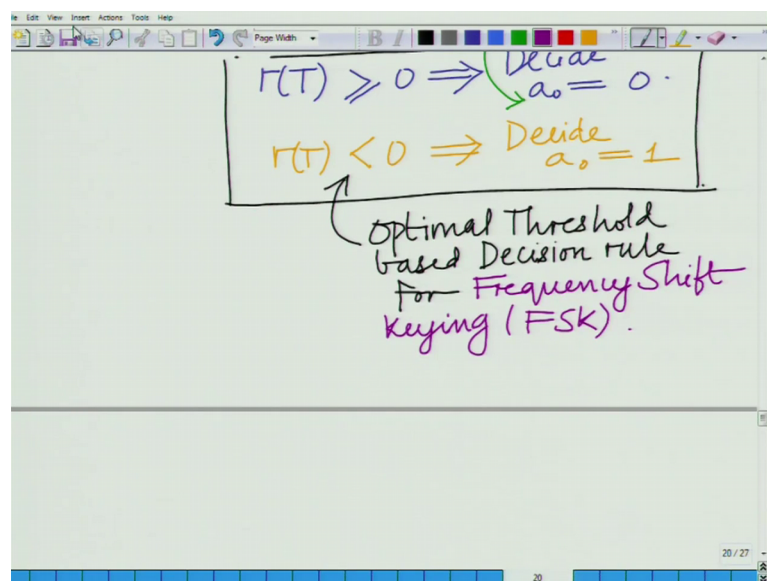 Edit View Insert Actions Tools Help
Page Width B I
r(T) ⩾ 0 ⟹ Decide
a₀ = 0.
r(T) < 0 ⟹ Decide
a₀ = 1
Optimal Threshold
based Decision rule
For Frequency Shift
Keying (FSK).
20 / 27
20